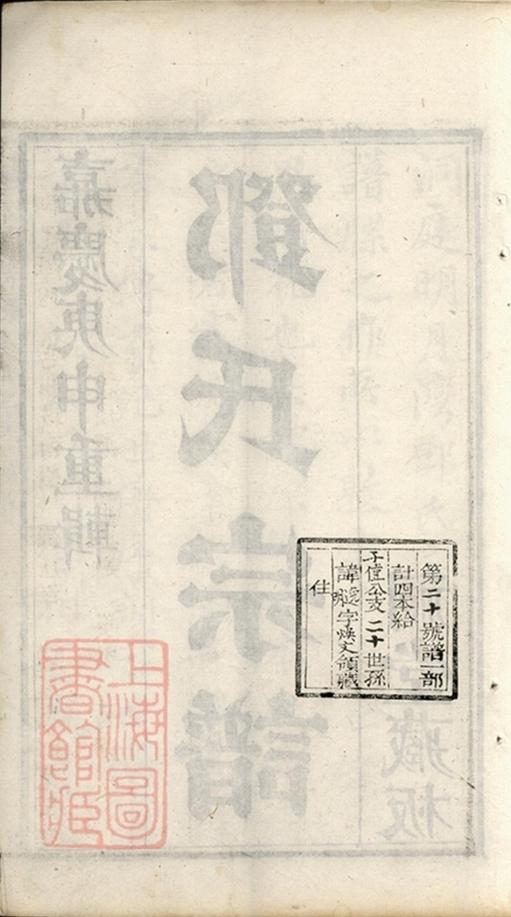 嘉慶庚申重輯
鄧氏宗譜
洞庭明月灣鄧氏藏板
第二十號譜一部
計四本給
公支二十世孫
諱字煥文領藏
住
上海圖
書館藏